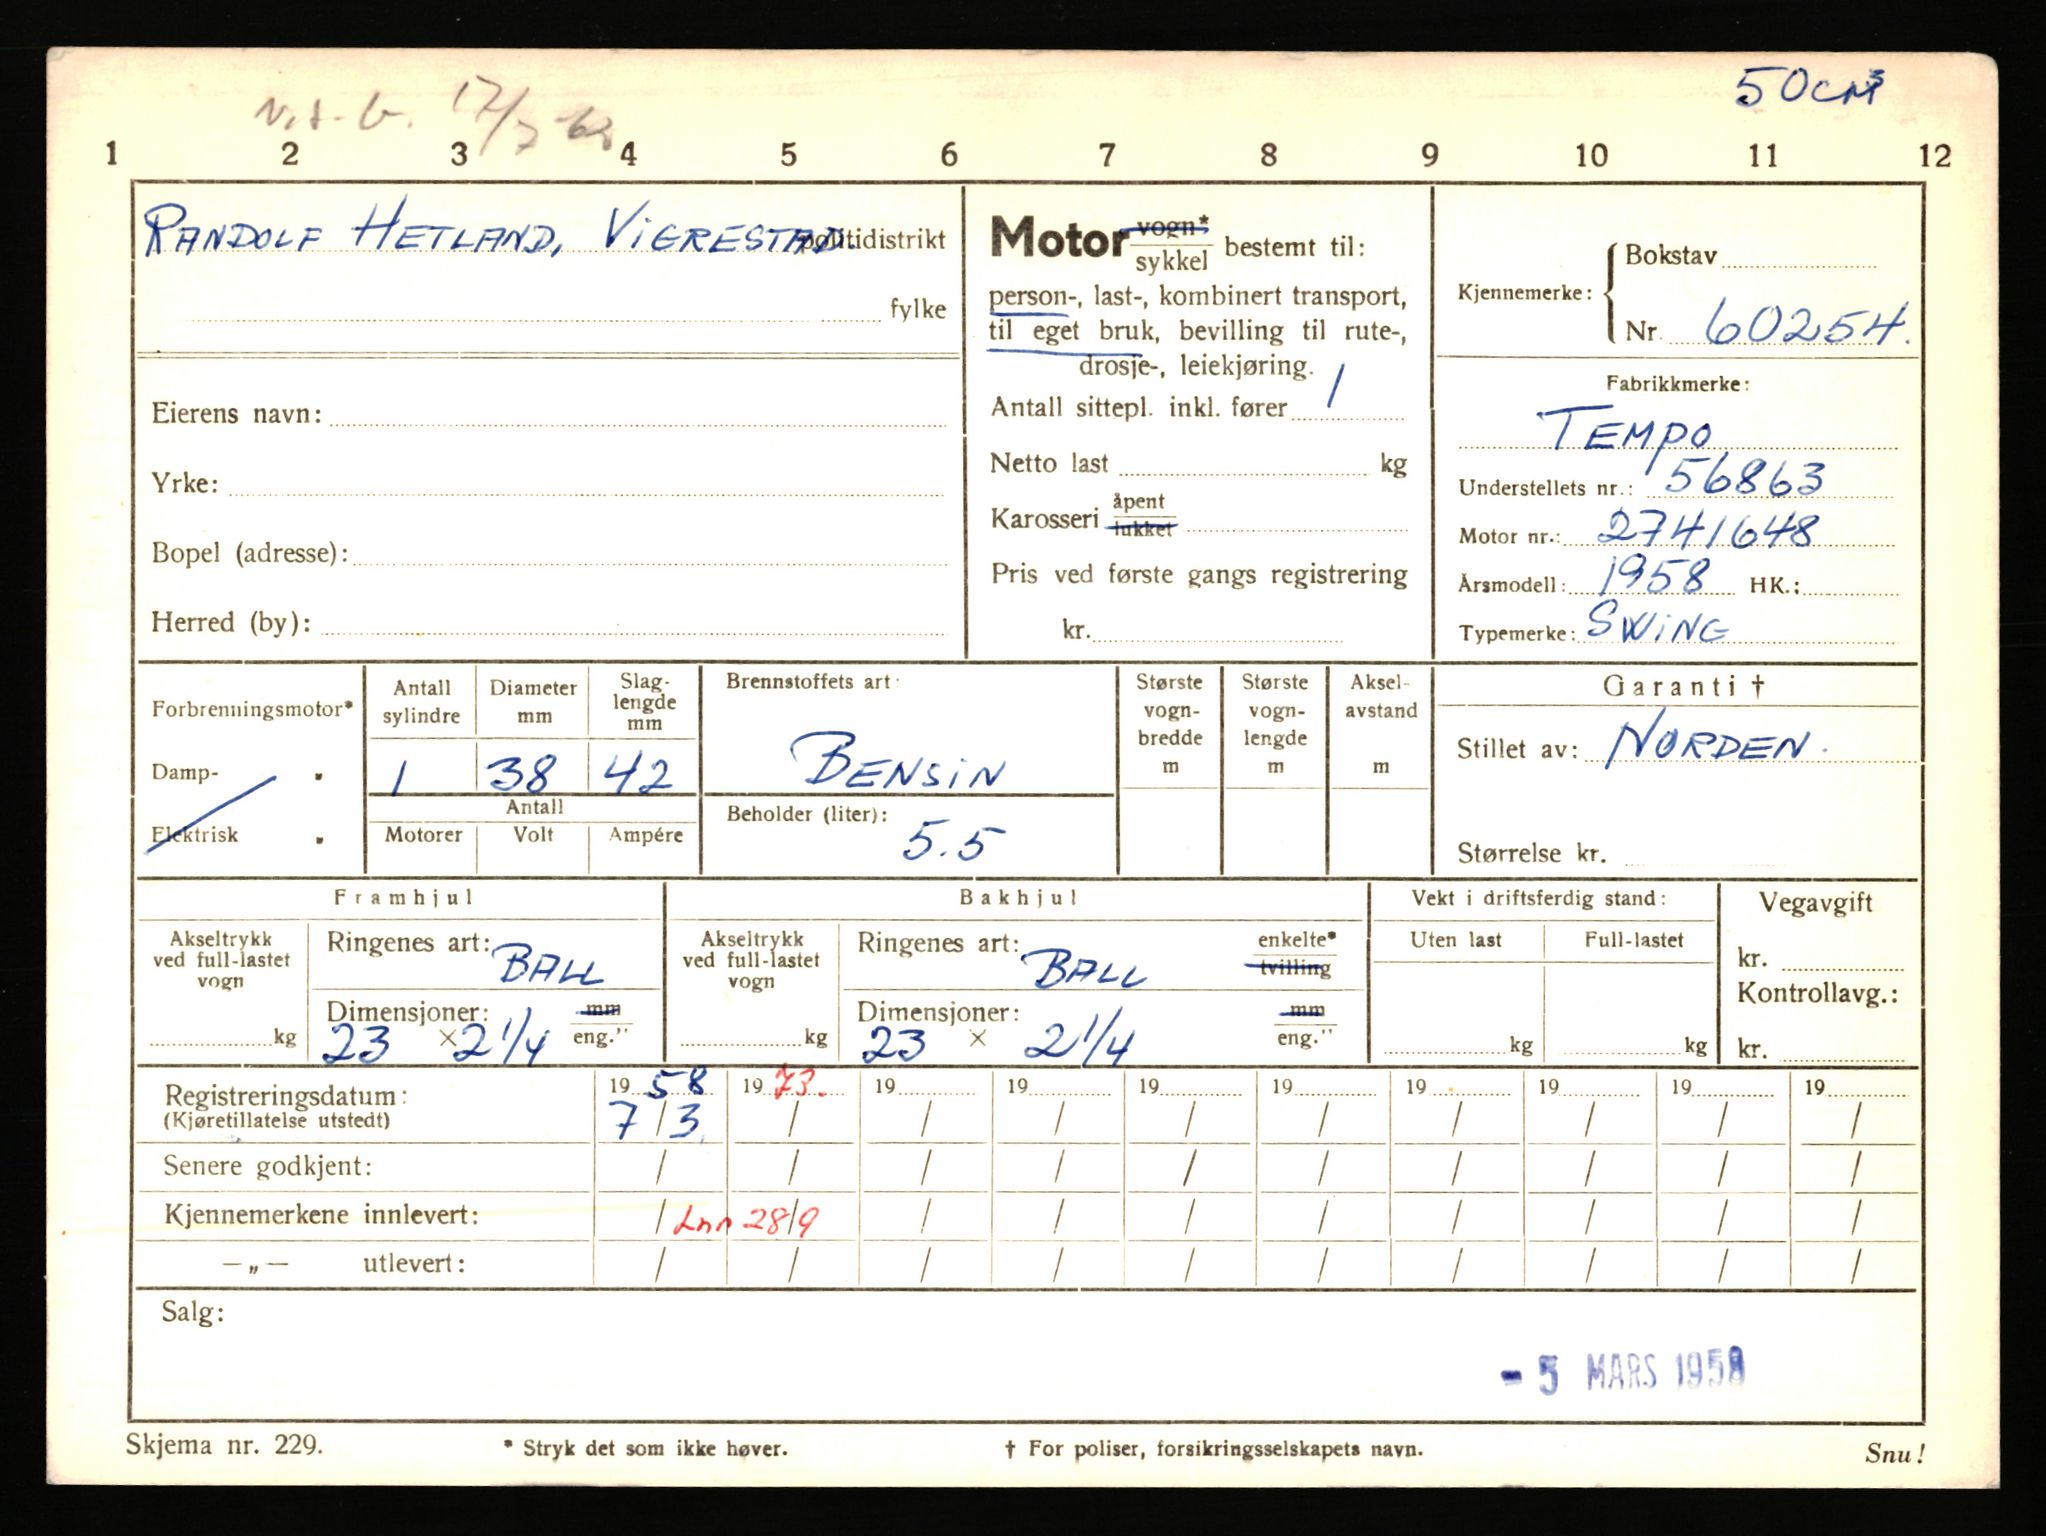 50 CM³
17/7-62
1 2 3 4 5 6 7 8 9 10 11 12
RANDOLF HETLAND, VIGRESTAD. politidistrikt
fylke
Eierens navn:
Yrke:
Bopel (adresse):
Herred (by):
Motor vogn* sykkel bestemt til:
person-, last-, kombinert transport,
til eget bruk, bevilling til rute-,
drosje-, leiekjøring.
Antall sittepl. inkl. fører 1
Netto last kg
Karosseri åpent lukket
Pris ved første gangs registrering
kr.
Kjennemerke: Bokstav
Nr. 60254.
Fabrikkmerke:
TEMPO
Understellets nr.: 56863
Motor nr.: 2741648
Årsmodell: 1958 HK.:
Typemerke: SWING
Forbrenningsmotor*
Damp- "
Elektrisk "
Antall sylindre Diameter mm Slaglengde mm
1 38 42
Antall
Motorer Volt Ampére
Brennstoffets art:
BENSIN
Beholder (liter):
5.5
Største vognbredde m
Største vognlengde m
Akselavstand m
Garanti †
Stillet av: NORDEN.
Størrelse kr.
Framhjul
Akseltrykk ved full-lastet vogn
kg
Ringenes art: BALL
Dimensjoner: mm
23 × 2 1/4 eng."
Bakhjul
Akseltrykk ved full-lastet vogn
kg
Ringenes art: BALL enkelte* tvilling
Dimensjoner: mm
23 × 2 1/4 eng."
Vekt i driftsferdig stand:
Uten last Full-lastet
kg kg
Vegavgift
kr.
Kontrollavg.:
kr.
Registreringsdatum: 19 58 19 73. 19 19 19 19 19 19 19 19
(Kjøretillatelse utstedt) 7/3 / / / / / / / / /
Senere godkjent: / / / / / / / / / /
Kjennemerkene innlevert: / Inn 28/9 / / / / / / / /
—„— utlevert: / / / / / / / / / /
Salg:
- 5 MARS 1958
Skjema nr. 229. * Stryk det som ikke høver. † For poliser, forsikringsselskapets navn. Snu!